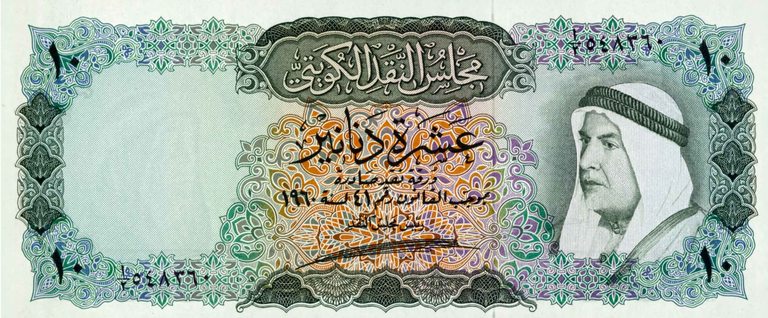 ١٠ ١/٢ ٥٤٨٣٦٠ ١٠
مجلس النقد الكويتي
عشرة دنانير
ورقة نقد صادرة
بموجب القانون رقم ٤١ لسنة ١٩٦٠
رئيس مجلس النقد
١٠ ١/٢ ٥٤٨٣٦٠ ١٠